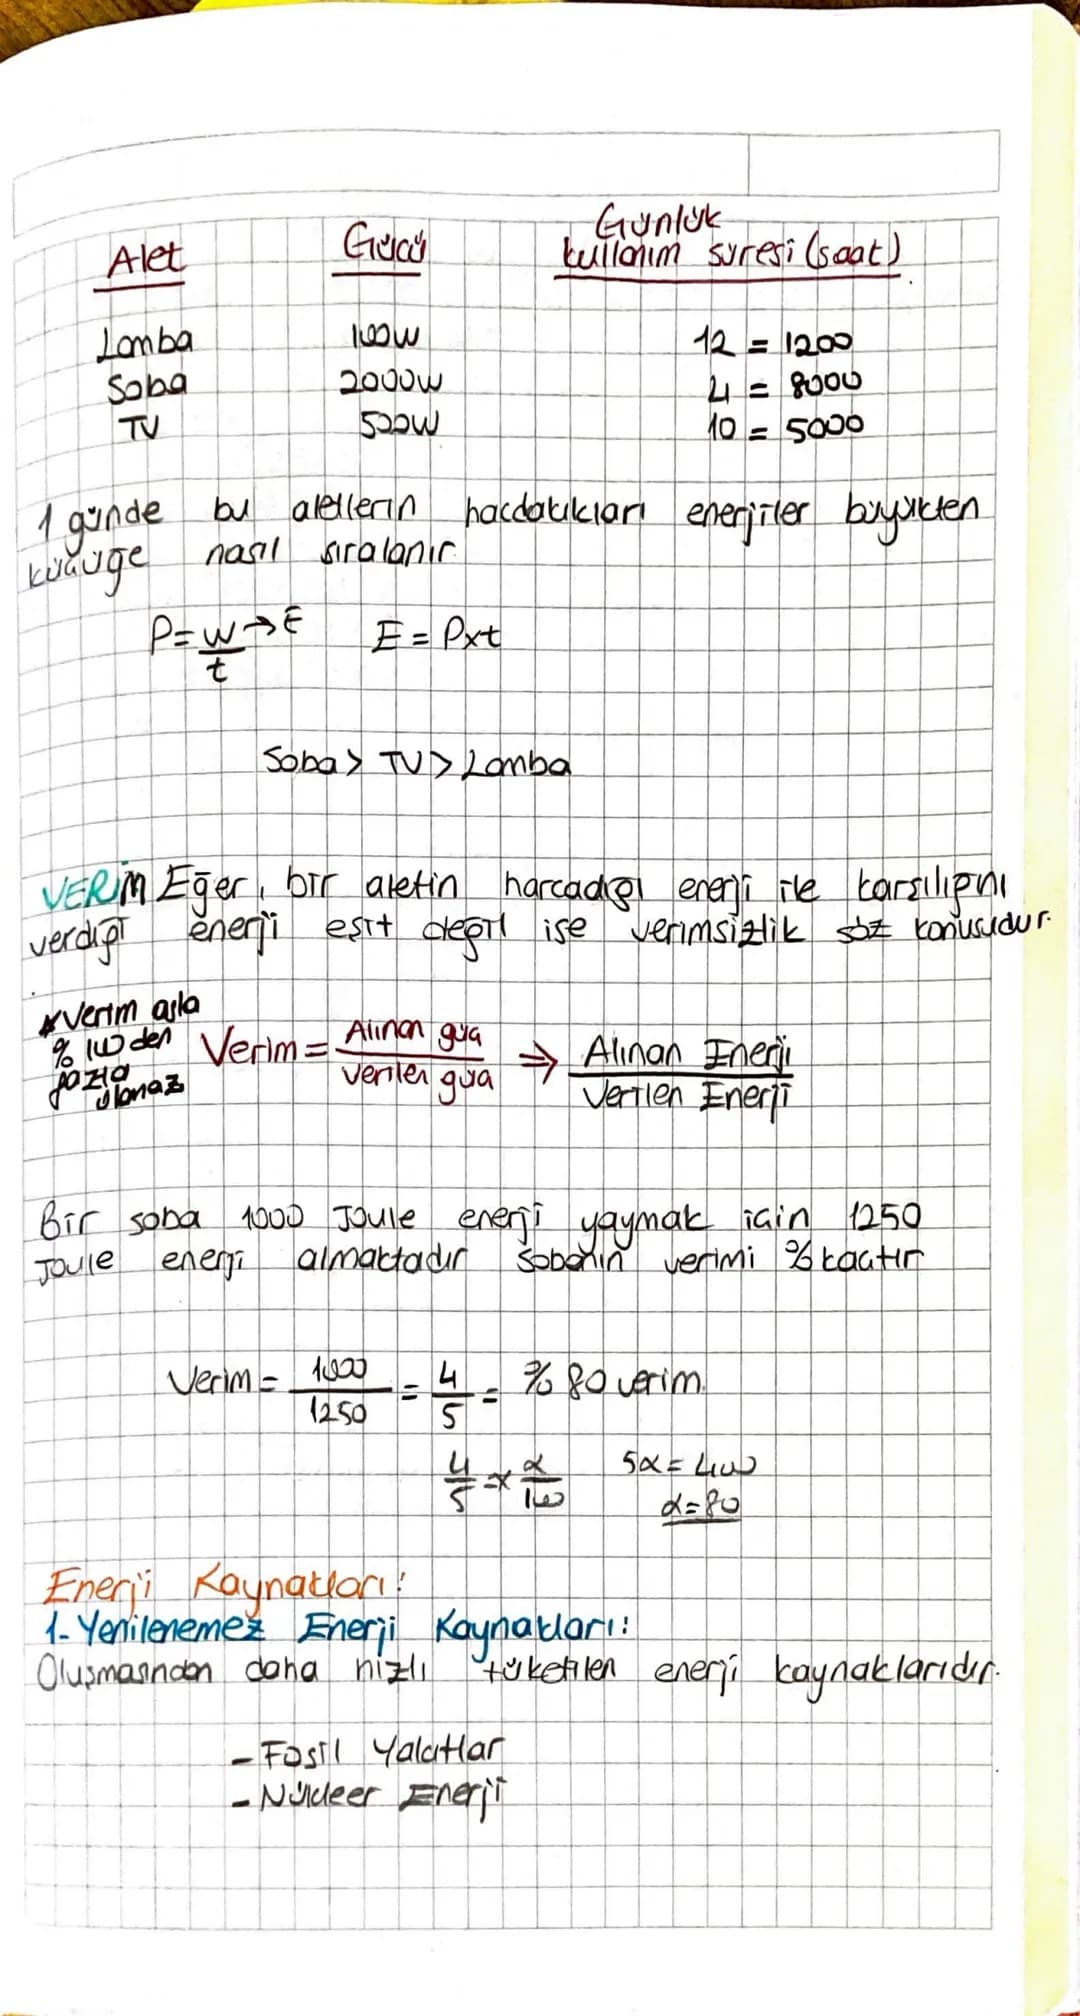 Alet Gücü Günlük kullanım suresi (saat)
Lamba 100W 12 = 1200
Soba 2000W 4 = 8000
TV 500W 10 = 5000
1 günde bu aletlerin hacdatıkları enerjiler büyükten
küçüğe nasıl sıralanır
P = W → E / t E = Pxt
Soba > TV > Lamba
VERİM Eğer, bir aletin harcadığı enerji ile karşılığını
verdiği enerji eşit değil ise verimsizlik söz konusudur.
*Verim asla
% 100 den
fazla
olamaz
Verim = Alınan güç / Verilen güç ⇒ Alınan Enerji / Verilen Enerji
Bir soba 1000 Joule enerji yaymak için 1250
Joule enerji almaktadır Sobanın verimi % kaçtır
Verim = 1000 / 1250 = 4 / 5 = % 80 verim.
4 / 5 = x α / 100 5α = 400
α = 80
Enerji Kaynakları:
1- Yenilenemez Enerji Kaynakları:
Oluşmasından daha hızlı tüketilen enerji kaynaklarıdır.
- Fosil Yakıtlar
- Nükleer Enerji